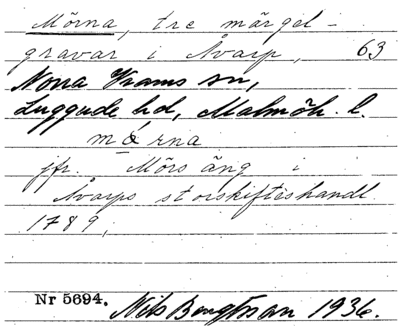 Mörna, tre märgel-
gravar i Åvarp, 63
Norra Vrams sn,
Luggude hd, Malmöh. l.
mǿrna
jfr. Mörs äng i
Åvarps storskifteshandl.
1789,
Nr 5694. Nils Bengtsson 1936.